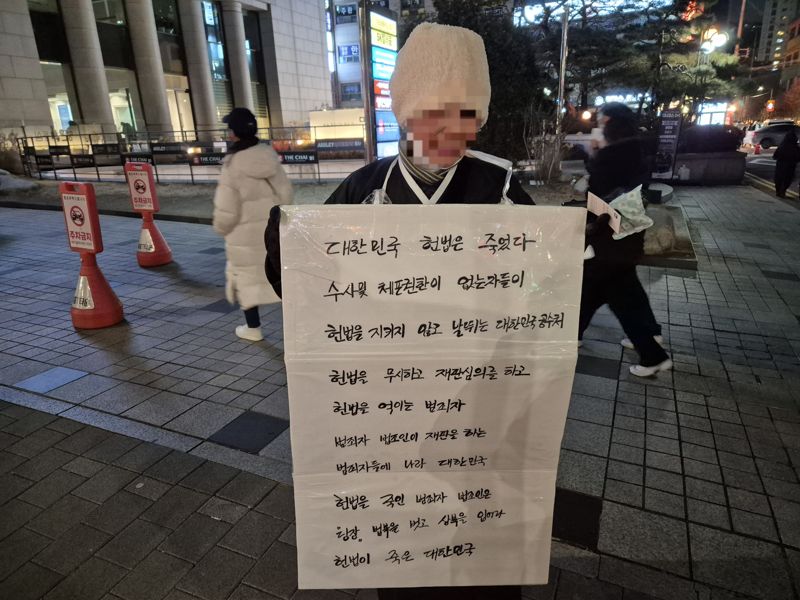 대한민국 헌법은 죽었다
수사및 체포권한이 없는자들이
헌법을 지키지 않고 날뛰는 대한민국공수처
헌법을 무시하고 재판심의를 하고
헌법을 어이는 범죄자
범죄자 법조인이 재판을 하는
범죄자들에 나라 대한민국
헌법을 국인 범죄자 법조인은
당장, 법복을 벗고 상복을 입어라
헌법이 죽은 대한민국
주차금지
주차금지
THE CHAI
THE CHAI